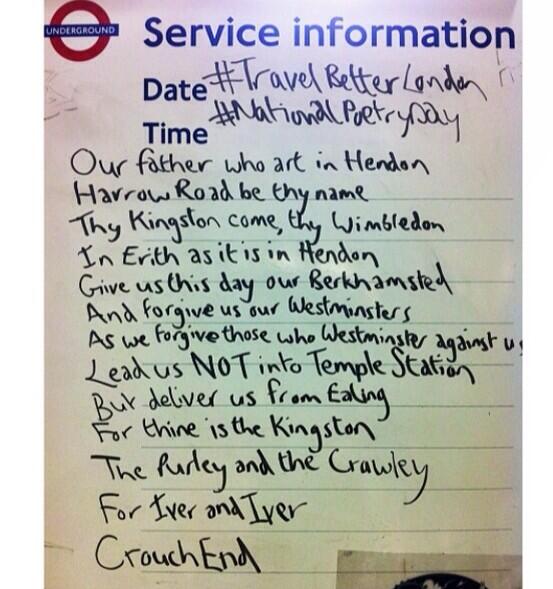 UNDERGROUND
Service information
Date #TravelBetterLondon
#NationalPoetryDay
Time
Our father who art in Hendon
Harrow Road be thy name
Thy Kingston come, thy Wimbledon
In Erith as it is in Hendon
Give us this day our Berkhamsted
And forgive us our Westminsters
As we forgive those who Westminster against us
Lead us NOT into Temple Station
But deliver us from Ealing
For thine is the Kingston
The Purley and the Crawley
For Iver and Iver
Crouch End